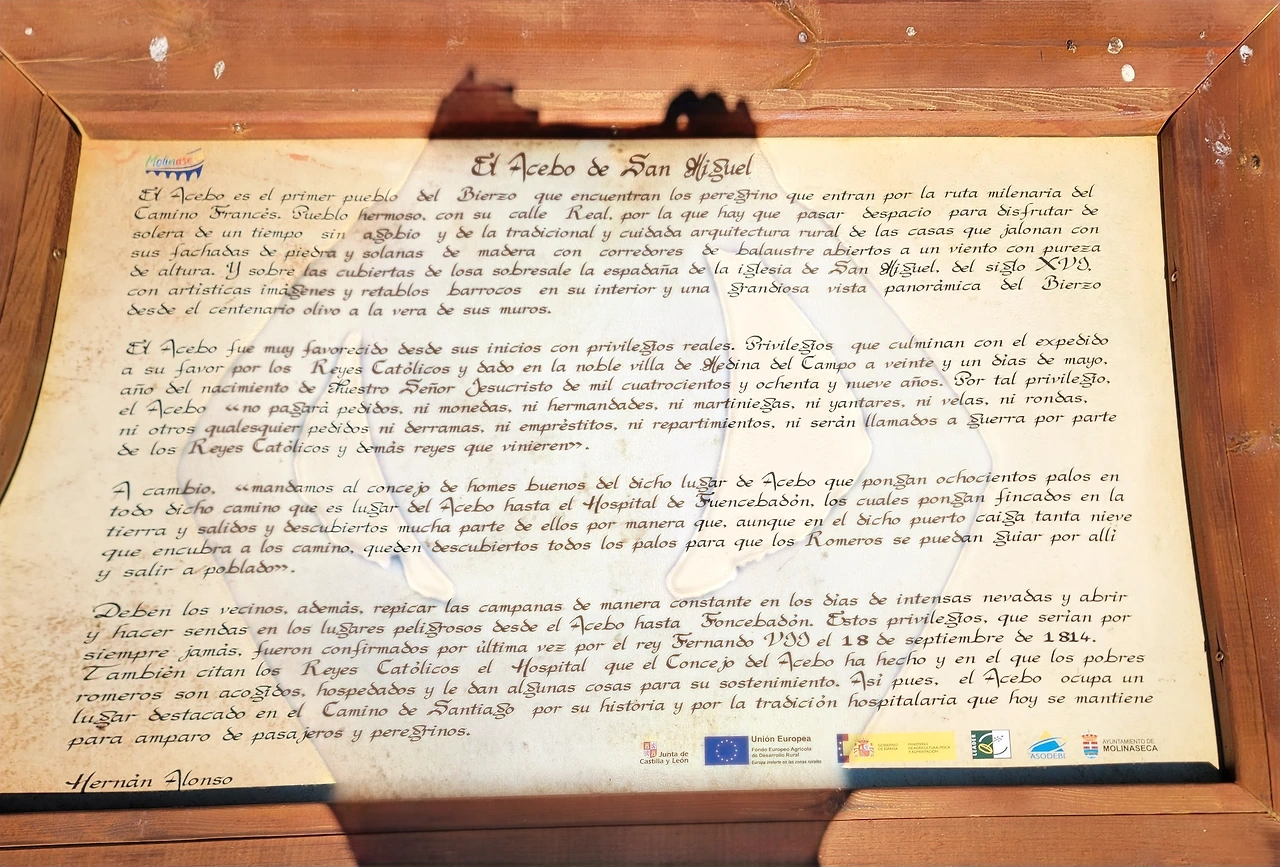 Molinaseca
El Acebo de San Miguel
El Acebo es el primer pueblo del Bierzo que encuentran los peregrino que entran por la ruta milenaria del
Camino Francés. Pueblo hermoso, con su calle Real, por la que hay que pasar despacio para disfrutar de
solera de un tiempo sin agobio y de la tradicional y cuidada arquitectura rural de las casas que jalonan con
sus fachadas de piedra y solanas de madera con corredores de balaustre abiertos a un viento con pureza
de altura. Y sobre las cubiertas de losa sobresale la espadaña de la iglesia de San Miguel, del siglo XVI,
con artisticas imágenes y retablos barrocos en su interior y una grandiosa vista panorámica del Bierzo
desde el centenario olivo a la vera de sus muros.
El Acebo fue muy favorecido desde sus inicios con privilegios reales. Privilegios que culminan con el expedido
a su favor por los Reyes Católicos y dado en la noble villa de Medina del Campo a veinte y un dias de mayo,
año del nacimiento de Nuestro Señor Jesucristo de mil cuatrocientos y ochenta y nueve años. Por tal privilegio,
el Acebo «no pagará pedidos, ni monedas, ni hermandades, ni martiniegas, ni yantares, ni velas, ni rondas,
ni otros qualesquier pedidos ni derramas, ni empréstitos, ni repartimientos, ni serán llamados a guerra por parte
de los Reyes Católicos y demás reyes que vinieren».
A cambio, «mandamos al concejo de homes buenos del dicho lugar de Acebo que pongan ochocientos palos en
todo dicho camino que es lugar del Acebo hasta el Hospital de Fuencebadón, los cuales pongan fincados en la
tierra y salidos y descubiertos mucha parte de ellos por manera que, aunque en el dicho puerto caiga tanta nieve
que encubra a los camino, queden descubiertos todos los palos para que los Romeros se puedan guiar por alli
y salir a poblado».
Deben los vecinos, además, repicar las campanas de manera constante en los dias de intensas nevadas y abrir
y hacer sendas en los lugares peligrosos desde el Acebo hasta Foncebadón. Estos privilegios, que serian por
siempre jamás, fueron confirmados por última vez por el rey Fernando VII el 18 de septiembre de 1814.
También citan los Reyes Católicos el Hospital que el Concejo del Acebo ha hecho y en el que los pobres
romeros son acogidos, hospedados y le dan algunas cosas para su sostenimiento. Asi pues, el Acebo ocupa un
lugar destacado en el Camino de Santiago por su história y por la tradición hospitalaria que hoy se mantiene
para amparo de pasajeros y peregrinos.
Hernán Alonso
Junta de
Castilla y León
Unión Europea
Fondo Europeo Agrícola
de Desarrollo Rural
Europa invierte en las zonas rurales
GOBIERNO
DE ESPAÑA
LEADER
ASODEBI
AYUNTAMIENTO DE
MOLINASECA